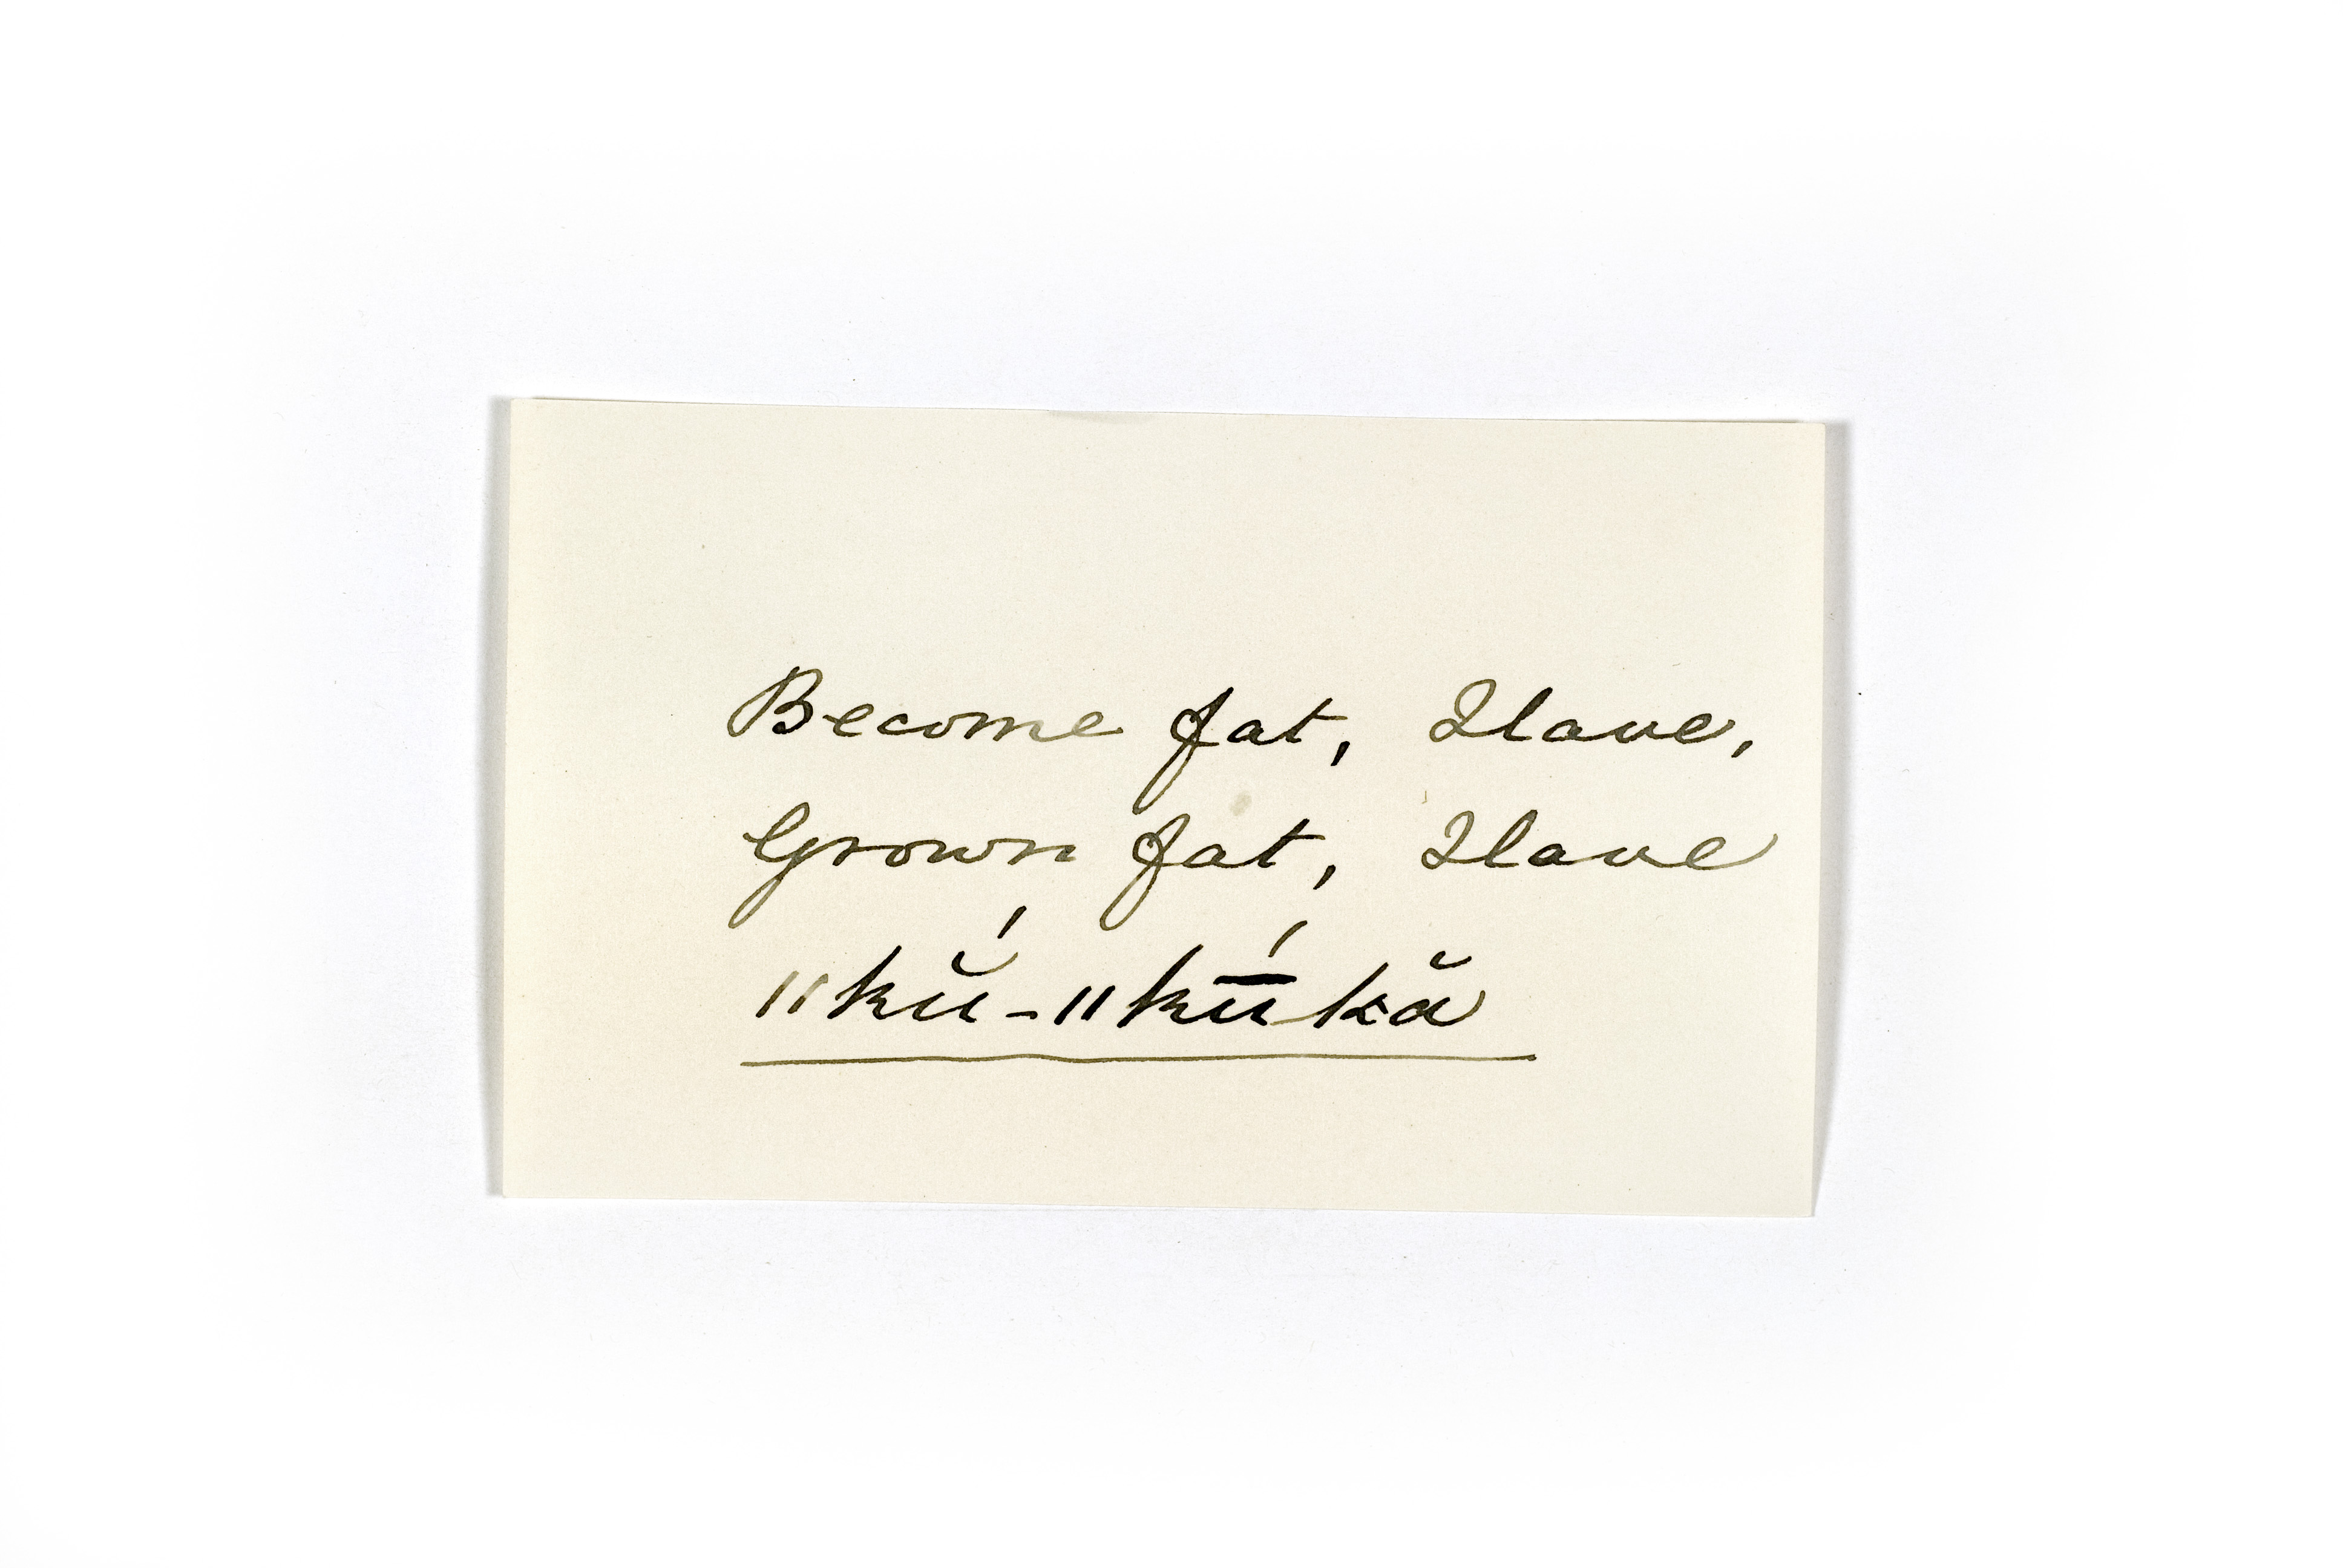 Become fat, Have,
Grown fat, Have
"kŭ́-"kū́kă